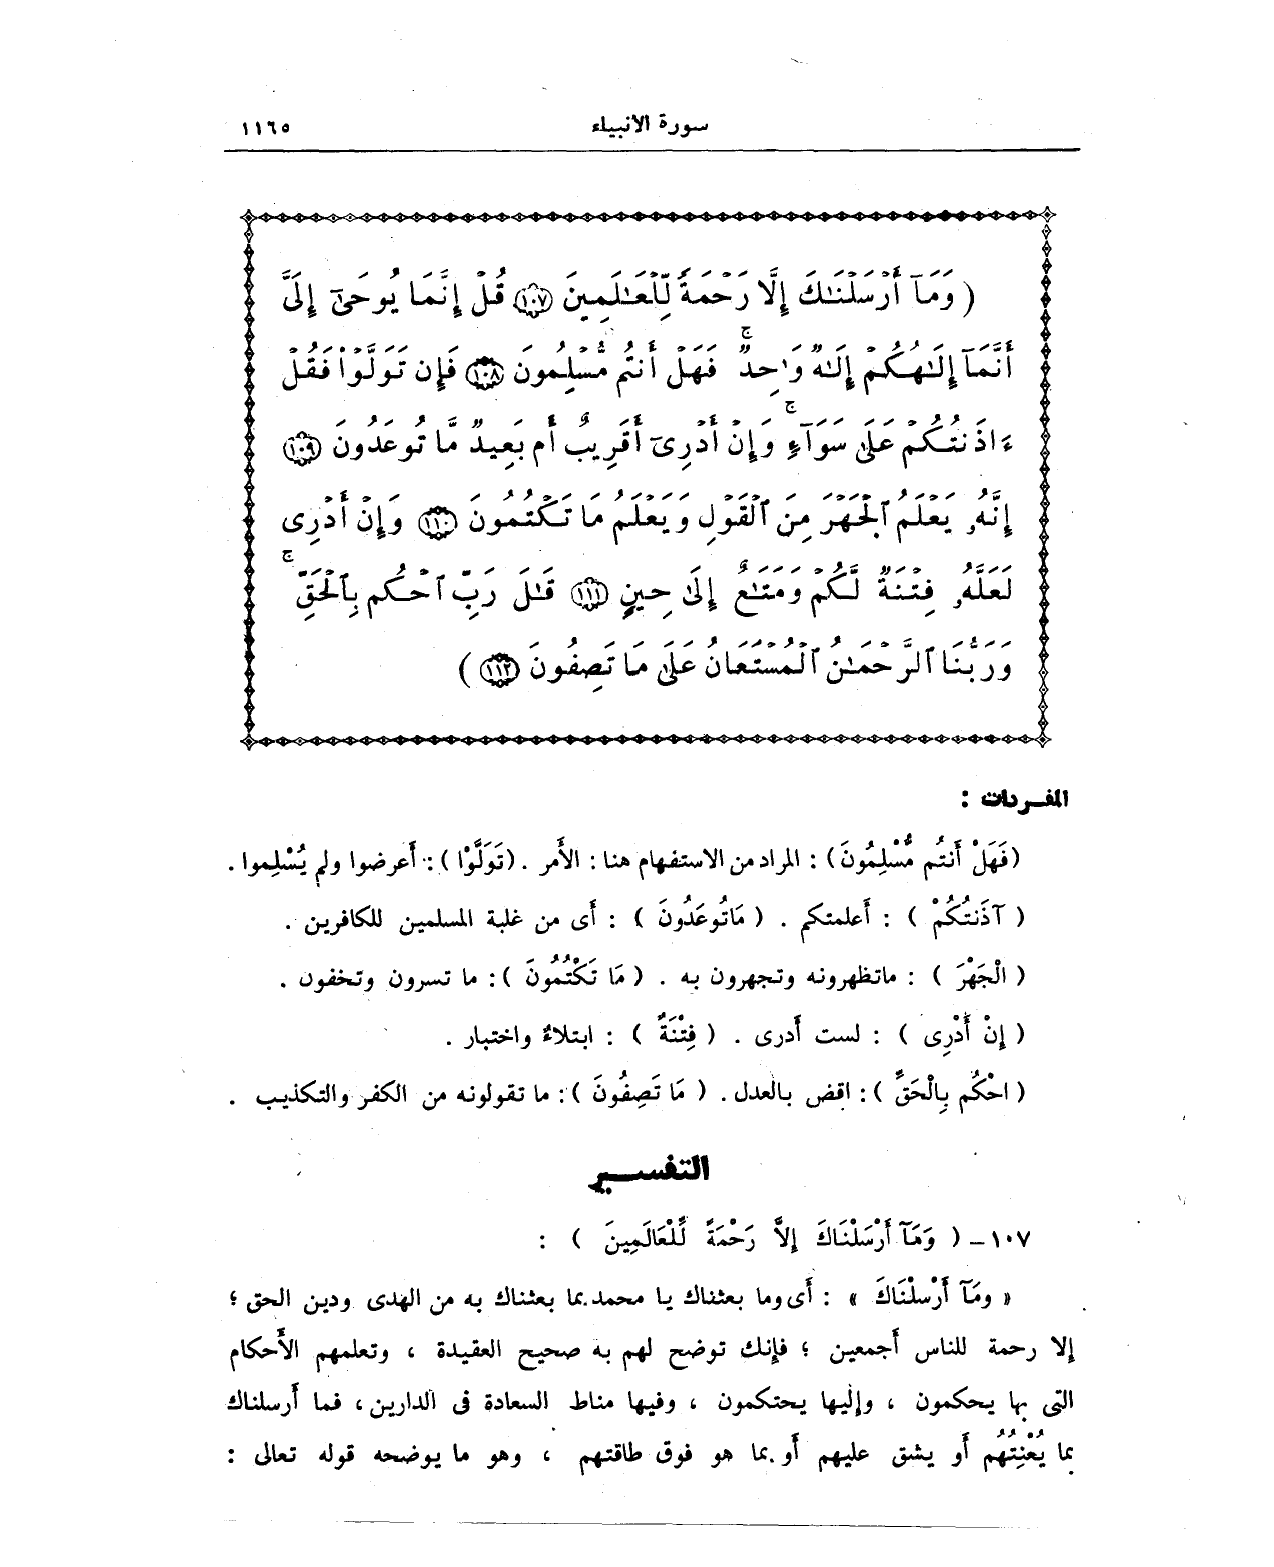 سورة الأنبياء
١١٦٥
(وَمَآ أَرْسَلْنَٰكَ إِلَّا رَحْمَةً لِّلْعَٰلَمِينَ ١٠٧ قُلْ إِنَّمَا يُوحَىٰٓ إِلَىَّ
أَنَّمَآ إِلَٰهُكُمْ إِلَٰهٌ وَٰحِدٌ ۖ فَهَلْ أَنتُم مُّسْلِمُونَ ١٠٨ فَإِن تَوَلَّوْا۟ فَقُلْ
ءَاذَنتُكُمْ عَلَىٰ سَوَآءٍ ۖ وَإِنْ أَدْرِىٓ أَقَرِيبٌ أَم بَعِيدٌ مَّا تُوعَدُونَ ١٠٩
إِنَّهُۥ يَعْلَمُ ٱلْجَهْرَ مِنَ ٱلْقَوْلِ وَيَعْلَمُ مَا تَكْتُمُونَ ١١٠ وَإِنْ أَدْرِى
لَعَلَّهُۥ فِتْنَةٌ لَّكُمْ وَمَتَٰعٌ إِلَىٰ حِينٍ ١١١ قَٰلَ رَبِّ ٱحْكُم بِٱلْحَقِّ ۗ
وَرَبُّنَا ٱلرَّحْمَٰنُ ٱلْمُسْتَعَانُ عَلَىٰ مَا تَصِفُونَ ١١٢)
المفردات :
(فَهَلْ أَنتُم مُّسْلِمُونَ) : المراد من الاستفهام هنا : الأمر . (تَوَلَّوْا) : أعرضوا ولم يُسْلِموا .
( آذَنتُكُمْ ) : أعلمتكم . ( مَاتُوعَدُونَ ) : أى من غلبة المسلمين للكافرين .
( الْجَهْرَ ) : ماتظهرونه وتجهرون به . ( مَا تَكْتُمُونَ ) : ما تسرون وتخفون .
( إِنْ أَدْرِى ) : لست أدرى . ( فِتْنَةٌ ) : ابتلاءٌ واختبار .
( احْكُم بِالْحَقِّ ) : اقض بالعدل . ( مَا تَصِفُونَ ) : ما تقولونه من الكفر والتكذيب .
التفسير
١٠٧ – ( وَمَآ أَرْسَلْنَاكَ إِلاَّ رَحْمَةً لِّلْعَالَمِينَ ) :
« ومَآ أَرْسلْنَاكَ » : أى وما بعثناك يا محمد بما بعثناك به من الهدى ودين الحق ؛
إلا رحمة للناس أجمعين ؛ فإنك توضح لهم به صحيح العقيدة ، وتعلمهم الأحكام
التى بها يحكمون ، وإليها يحتكمون ، وفيها مناط السعادة فى الدارين ، فما أرسلناك
بما يُعْنِتُهُم أو يشق عليهم أو بما هو فوق طاقتهم ، وهو ما يوضحه قوله تعالى :